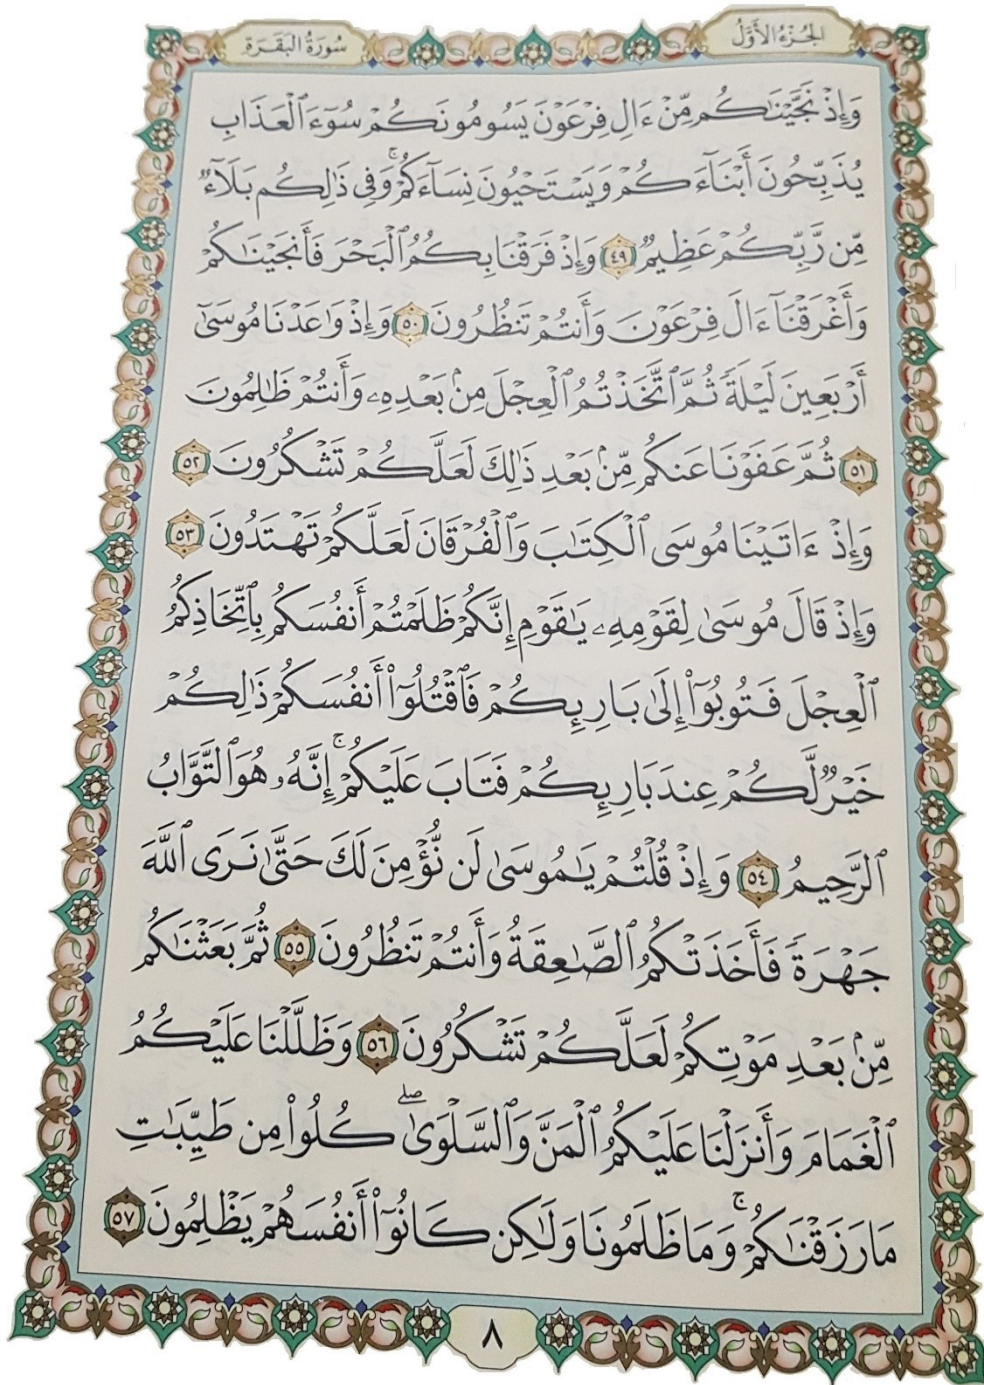 الجُزْءُ الأَوَّلُ
سُورَةُ البَقَرَةِ
وَإِذۡ نَجَّيۡنَٰكُم مِّنۡ ءَالِ فِرۡعَوۡنَ يَسُومُونَكُمۡ سُوٓءَ ٱلۡعَذَابِ
يُذَبِّحُونَ أَبۡنَآءَكُمۡ وَيَسۡتَحۡيُونَ نِسَآءَكُمۡۚ وَفِي ذَٰلِكُم بَلَآءٞ
مِّن رَّبِّكُمۡ عَظِيمٞ ٤٩ وَإِذۡ فَرَقۡنَا بِكُمُ ٱلۡبَحۡرَ فَأَنجَيۡنَٰكُمۡ
وَأَغۡرَقۡنَآ ءَالَ فِرۡعَوۡنَ وَأَنتُمۡ تَنظُرُونَ ٥٠ وَإِذۡ وَٰعَدۡنَا مُوسَىٰٓ
أَرۡبَعِينَ لَيۡلَةٗ ثُمَّ ٱتَّخَذۡتُمُ ٱلۡعِجۡلَ مِنۢ بَعۡدِهِۦ وَأَنتُمۡ ظَٰلِمُونَ
٥١ ثُمَّ عَفَوۡنَا عَنكُم مِّنۢ بَعۡدِ ذَٰلِكَ لَعَلَّكُمۡ تَشۡكُرُونَ ٥٢
وَإِذۡ ءَاتَيۡنَا مُوسَى ٱلۡكِتَٰبَ وَٱلۡفُرۡقَانَ لَعَلَّكُمۡ تَهۡتَدُونَ ٥٣
وَإِذۡ قَالَ مُوسَىٰ لِقَوۡمِهِۦ يَٰقَوۡمِ إِنَّكُمۡ ظَلَمۡتُمۡ أَنفُسَكُم بِٱتِّخَاذِكُمُ
ٱلۡعِجۡلَ فَتُوبُوٓاْ إِلَىٰ بَارِئِكُمۡ فَٱقۡتُلُوٓاْ أَنفُسَكُمۡ ذَٰلِكُمۡ
خَيۡرٞ لَّكُمۡ عِندَ بَارِئِكُمۡ فَتَابَ عَلَيۡكُمۡۚ إِنَّهُۥ هُوَ ٱلتَّوَّابُ
ٱلرَّحِيمُ ٥٤ وَإِذۡ قُلۡتُمۡ يَٰمُوسَىٰ لَن نُّؤۡمِنَ لَكَ حَتَّىٰ نَرَى ٱللَّهَ
جَهۡرَةٗ فَأَخَذَتۡكُمُ ٱلصَّٰعِقَةُ وَأَنتُمۡ تَنظُرُونَ ٥٥ ثُمَّ بَعَثۡنَٰكُم
مِّنۢ بَعۡدِ مَوۡتِكُمۡ لَعَلَّكُمۡ تَشۡكُرُونَ ٥٦ وَظَلَّلۡنَا عَلَيۡكُمُ
ٱلۡغَمَامَ وَأَنزَلۡنَا عَلَيۡكُمُ ٱلۡمَنَّ وَٱلسَّلۡوَىٰۖ كُلُواْ مِن طَيِّبَٰتِ
مَا رَزَقۡنَٰكُمۡۚ وَمَا ظَلَمُونَا وَلَٰكِن كَانُوٓاْ أَنفُسَهُمۡ يَظۡلِمُونَ ٥٧
٨